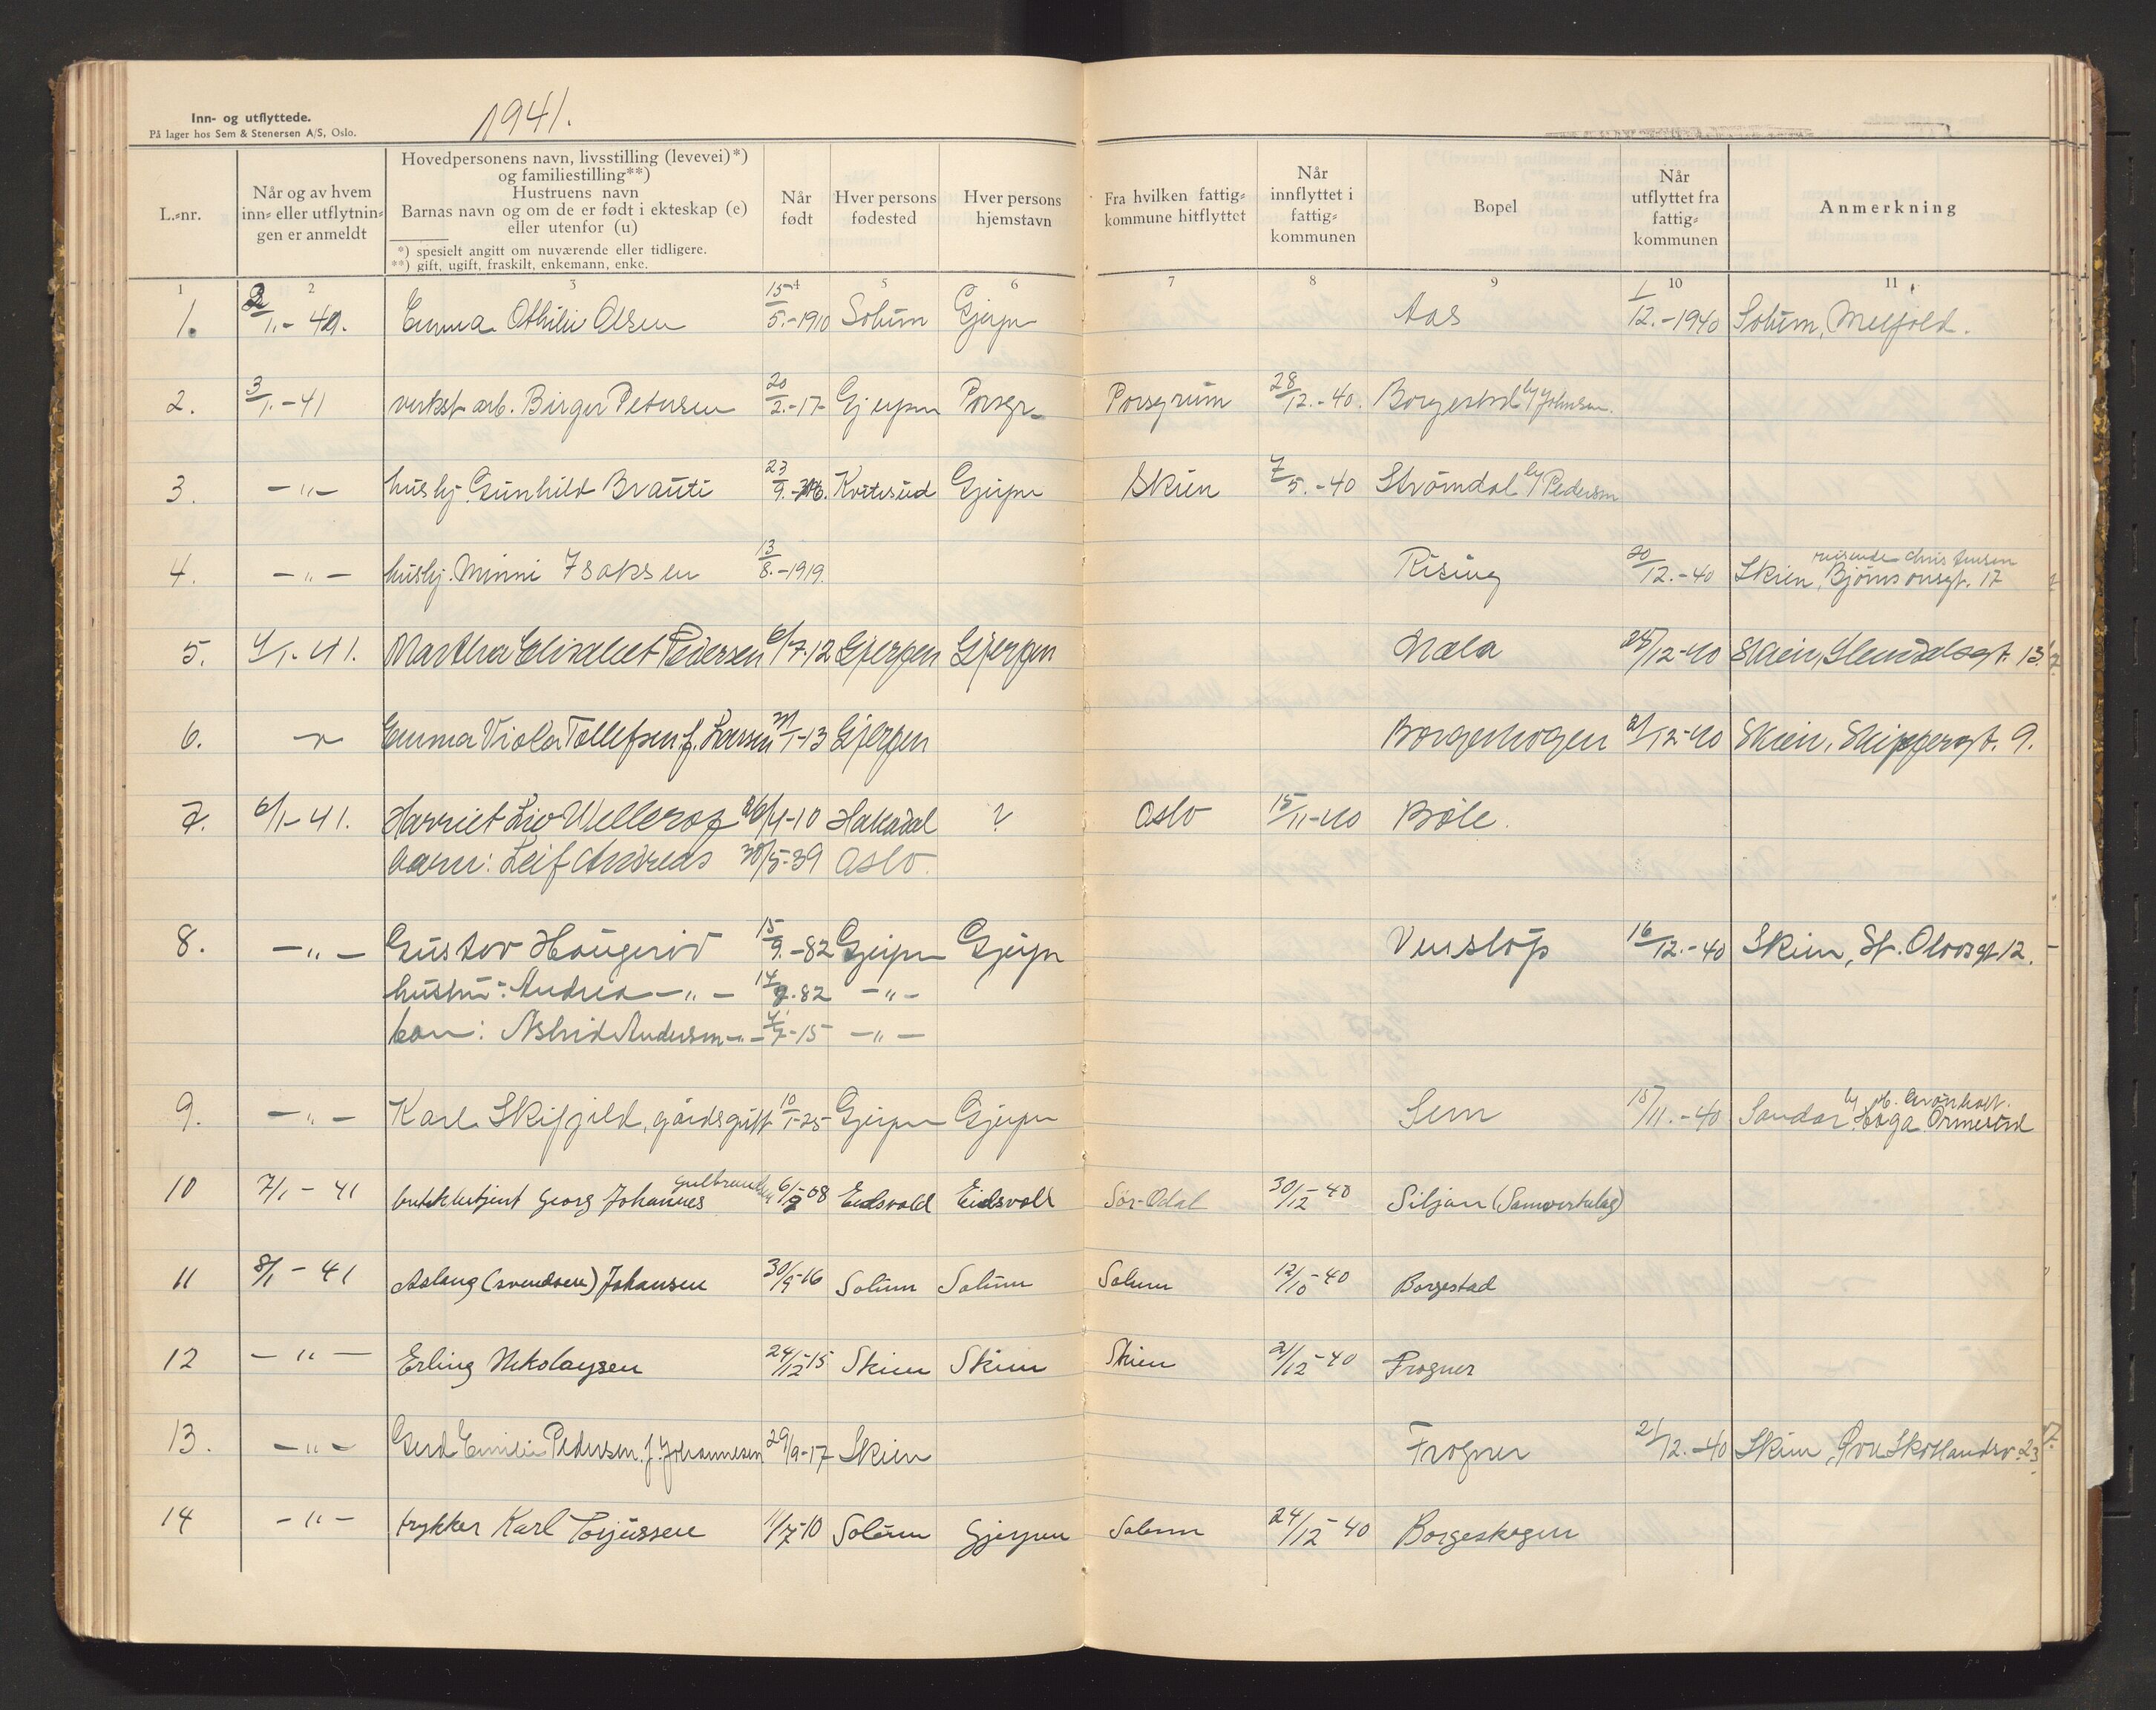 Inn- og utflyttede.
På lager hos Sem & Stenersen A/S, Oslo.
1941.
L.-nr.
Når og av hvem inn- eller utflytningen er anmeldt
Hovedpersonens navn, livsstilling (levevei)*)
og familiestilling**)
Hustruens navn
Barnas navn og om de er født i ekteskap (e)
eller utenfor (u)
*) spesielt angitt om nuværende eller tidligere.
**) gift, ugift, fraskilt, enkemann, enke.
Når født
Hver persons fødested
Hver persons hjemstavn
Fra hvilken fattig-kommune hitflyttet
Når innflyttet i fattig-kommunen
Bopel
Når utflyttet fra fattig-kommunen
Anmerkning
1 2 3 4 5 6 7 8 9 10 11
1. 2/1.-41. Emma Othilie Olsen 15/5.-1910 Solum Gjerpen Aas 1/12.-1940 Solum, Melfold.
2. 3/1.-41 verkst. arb. Birger Petersen 20/2.-17 Gjerpen Porsgr. Porsgrunn 28/12.-40. Borgestad h/Johnsen.
3. -"- hushj. Gunhild Brauti 23/9. Kviteseid Gjerpen Skien 7/5.-40 Strömdal h/Pedersen
4. -"- hushj. Minni Isaksen 13/8.-1919. Rising 20/12.-40 Skien, Bjørnsonsgt. 17
reisende Christensen
5. 4/1-41. Martha Elisabet Pedersen 6/7.12 Gjerpen Gjerpen Mæla 28/12-40 Skien, 13.
6. -"- Emma Viola Tollefsen f. Larsen 21/1-13 Gjerpen Borgehogen 21/12-40 Skien, Skippergt. 9.
7. 6/1-41. Harriet Liv Ulleros 26/4-10 Hakadal ? Oslo 15/11-40 Bøle.
barn: Leif Andreas 30/5-39 Oslo.
8. -"- Gustav Haugerød 15/9.-82 Gjerpen Gjerpen Venstøp 16/12.-40 Skien, St. Olavsgt 12.
hustru: Andrea -"- 14/9.82 -"-
barn: Astrid Andersen -"- 4/7-15 -"-
9. -"- Karl Skifjeld, gårdsgutt 10/1-25 Gjerpen Gjerpen Sem 15/11.-40 Sandar, Haga Ormestad
10 7/1-41 butikkbetjent Georg Johannes Gulbrandsen 6/8-08 Eidsvold Eidsvoll Sør-Odal 30/12-40 Siljan (Samvirkelag)
11 8/1-41 Aslaug (Svendsen) Johansen 30/9-16 Solum Solum Solum 12/10-40 Borgestad
12 -"- Erling Nikolaysen 24/12-15 Skien Skien Skien 21/12-40 Frogner
13. -"- Gerd Emilie Pedersen f. Johannesen 29/9-17 Skien Frogner 21/12.-40 Skien, Øvre Skotlandsv. 23
14 -"- trykker Karl Torjussen 11/7-10 Solum Gjerpen Solum 24/12-40 Borgeskogen